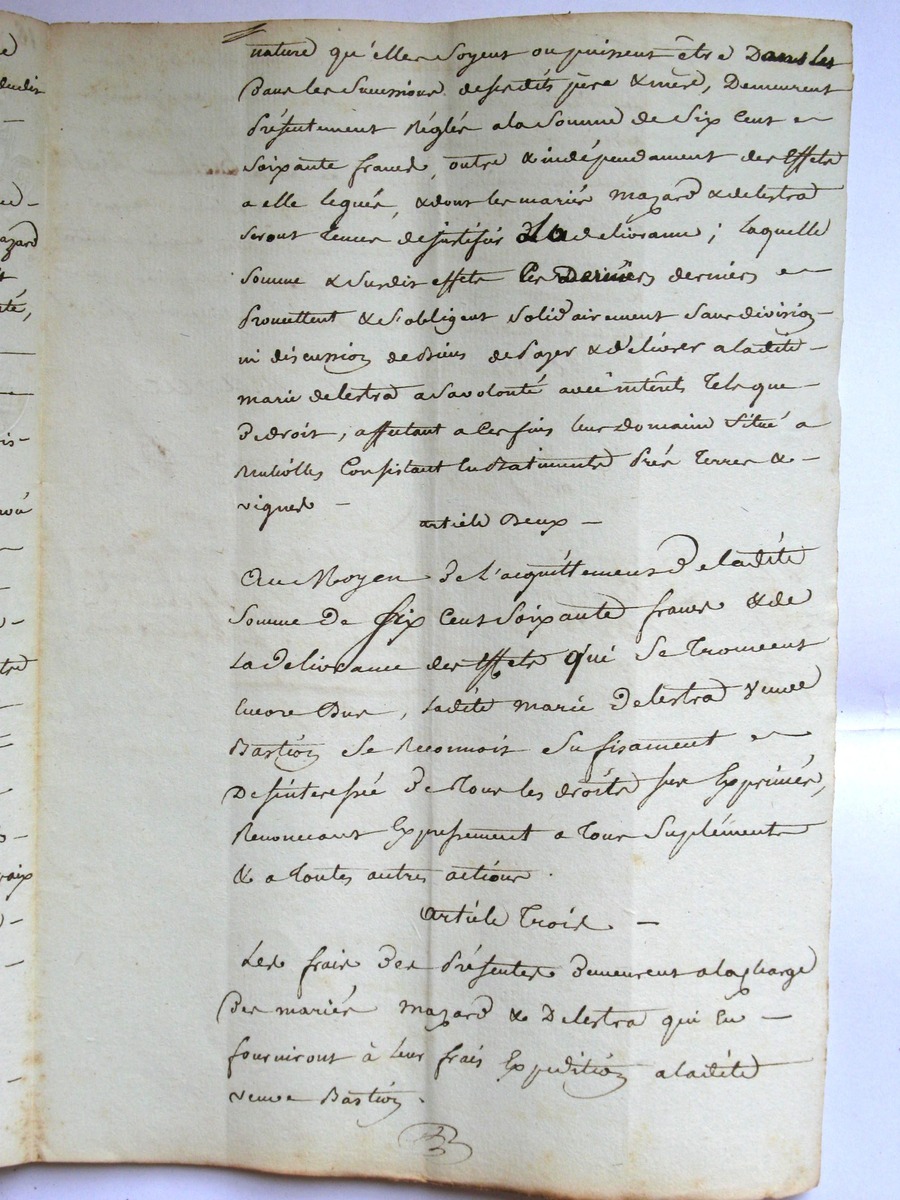 nature qu'elles soyent ou puissent être dans les
dans les successions desdits père & mère, Demeurent
Présentement Réglés a la somme de six cent
soixante francs, outre & indépendament des effets
a elle legués, & dont les mariés mazard & delestra
seront tenus de justifier de la délivrance ; laquelle
somme & susdit effets ces derniers derniers
Promettent & s'obligent solidairement sans division
ni discussion de biens de Payer & délivrer a la dite
marie delestra a sa volonté avec intérêts tels que
de droit, affectant a ces fins leur domaine situé a
Consistant en Batiments Prés Terres &
vignes
article Deux
Au Moyen de l'acquittement de la dite
somme de six cent soixante francs & de
la délivrance des effets qui se trouvent
encore Dus, ladite marie delestra veuve
Bastion se Reconnoit sufisament
Désinteressée de tous les droits sus Exprimés,
Renonceant Expressement a tous supléments
& a toutes autres actions.
article Trois
Les frais des Présentes demeurent a la charge
Des mariés mazard & Delestra qui en
fourniront à leur frais Expedition a ladite
veuve Bastion.